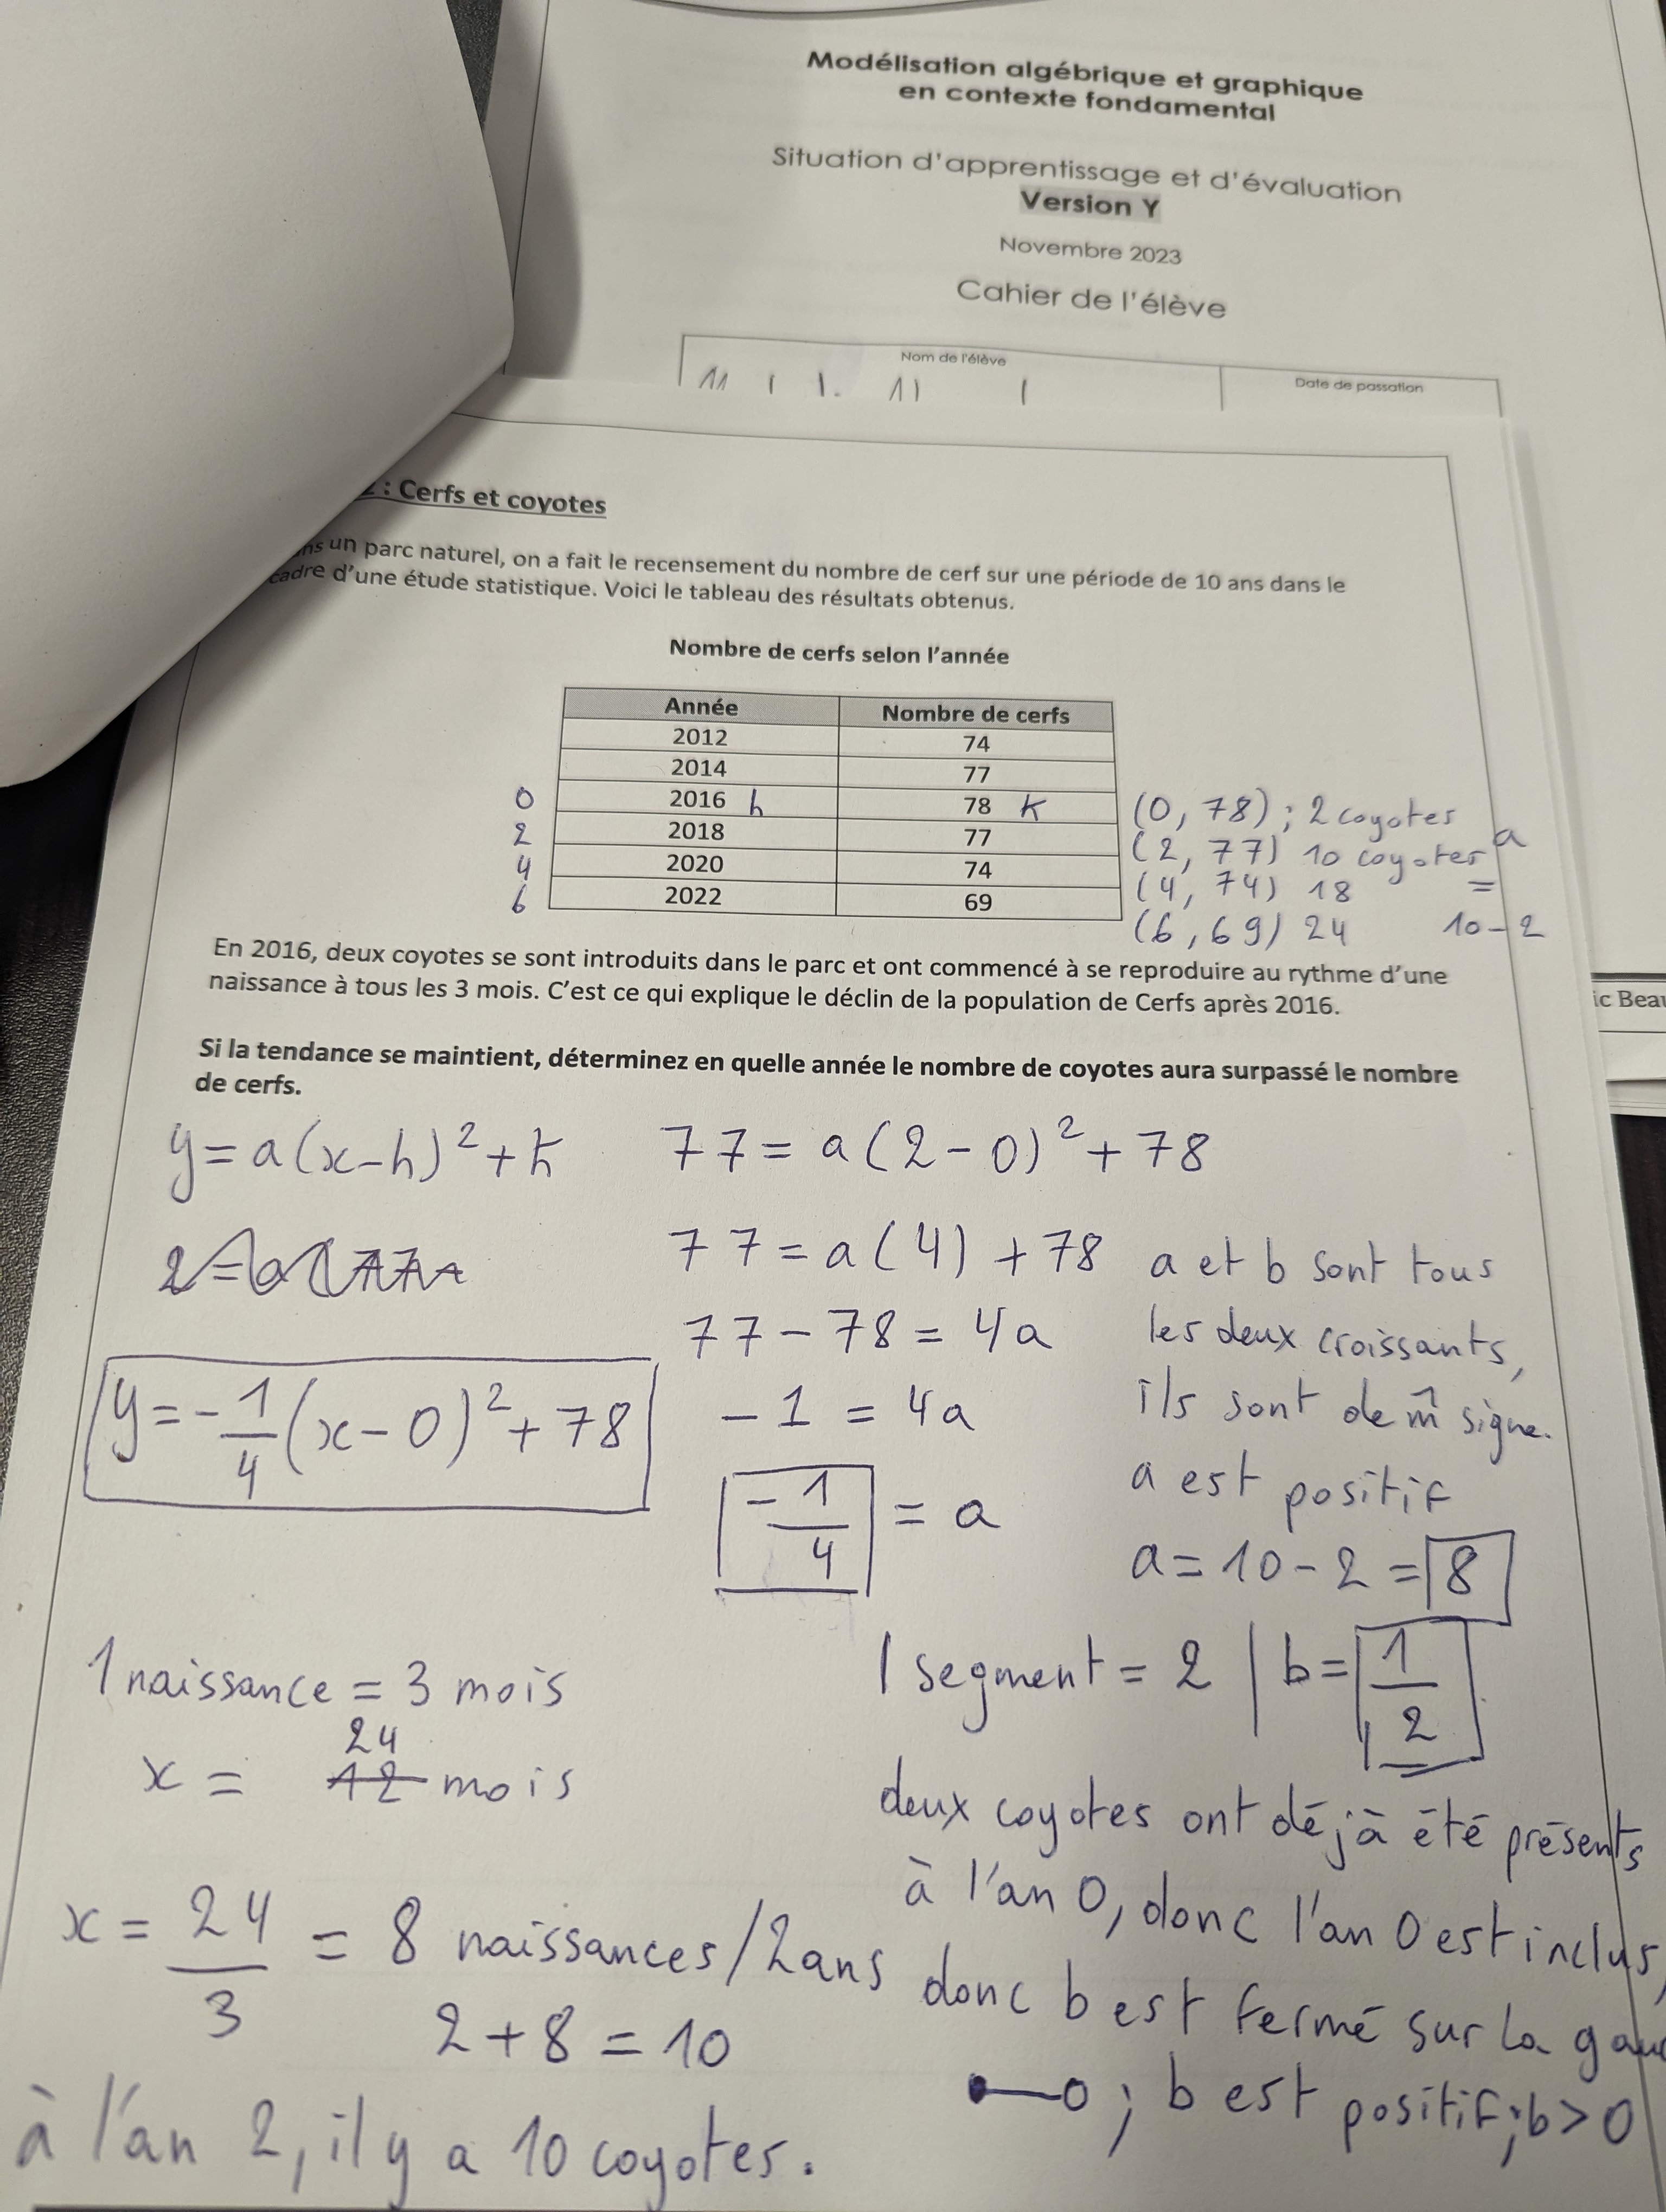 Modélisation algébrique et graphique
en contexte fondamental
Situation d'apprentissage et d'évaluation
Version Y
Novembre 2023
Cahier de l'élève
Nom de l'élève
Date de passation
: Cerfs et coyotes
un parc naturel, on a fait le recensement du nombre de cerf sur une période de 10 ans dans le
cadre d'une étude statistique. Voici le tableau des résultats obtenus.
Nombre de cerfs selon l'année
Année Nombre de cerfs
2012 74
2014 77
0 2016 h 78 k (0, 78) ; 2 coyotes
2 2018 77 (2, 77) 10 coyotes a
4 2020 74 (4, 74) 18 =
6 2022 69 (6, 69) 24 10-2
En 2016, deux coyotes se sont introduits dans le parc et ont commencé à se reproduire au rythme d'une
naissance à tous les 3 mois. C'est ce qui explique le déclin de la population de Cerfs après 2016.
ic Beau
Si la tendance se maintient, déterminez en quelle année le nombre de coyotes aura surpassé le nombre
de cerfs.
y = a(x-h)² + k
77 = a(2-0)² + 78
77 = a(4) + 78
77 - 78 = 4a
-1 = 4a
-1/4 = a
y = -1/4 (x-0)² + 78
a et b sont tous
les deux croissants,
ils sont de m̂ signe.
a est positif
a = 10 - 2 = 8
1 segment = 2 | b = 1/2
1 naissance = 3 mois
24
x = 12 mois
x = 24/3 = 8 naissances/2ans
2 + 8 = 10
à l'an 2, il y a 10 coyotes.
deux coyotes ont déjà été présents
à l'an 0, donc l'an 0 est inclus,
donc b est fermé sur la
; b est positif; b > 0